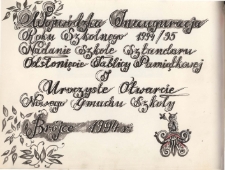 Wojewódzka Inauguracja
Roku Szkolnego 1994/95
Nadanie Szkole Sztandaru
Odsłonięcie Tablicy Pamiątkowej
I
Uroczyste Otwarcie
Nowego Gmachu Szkoły
Brójce 1994r.